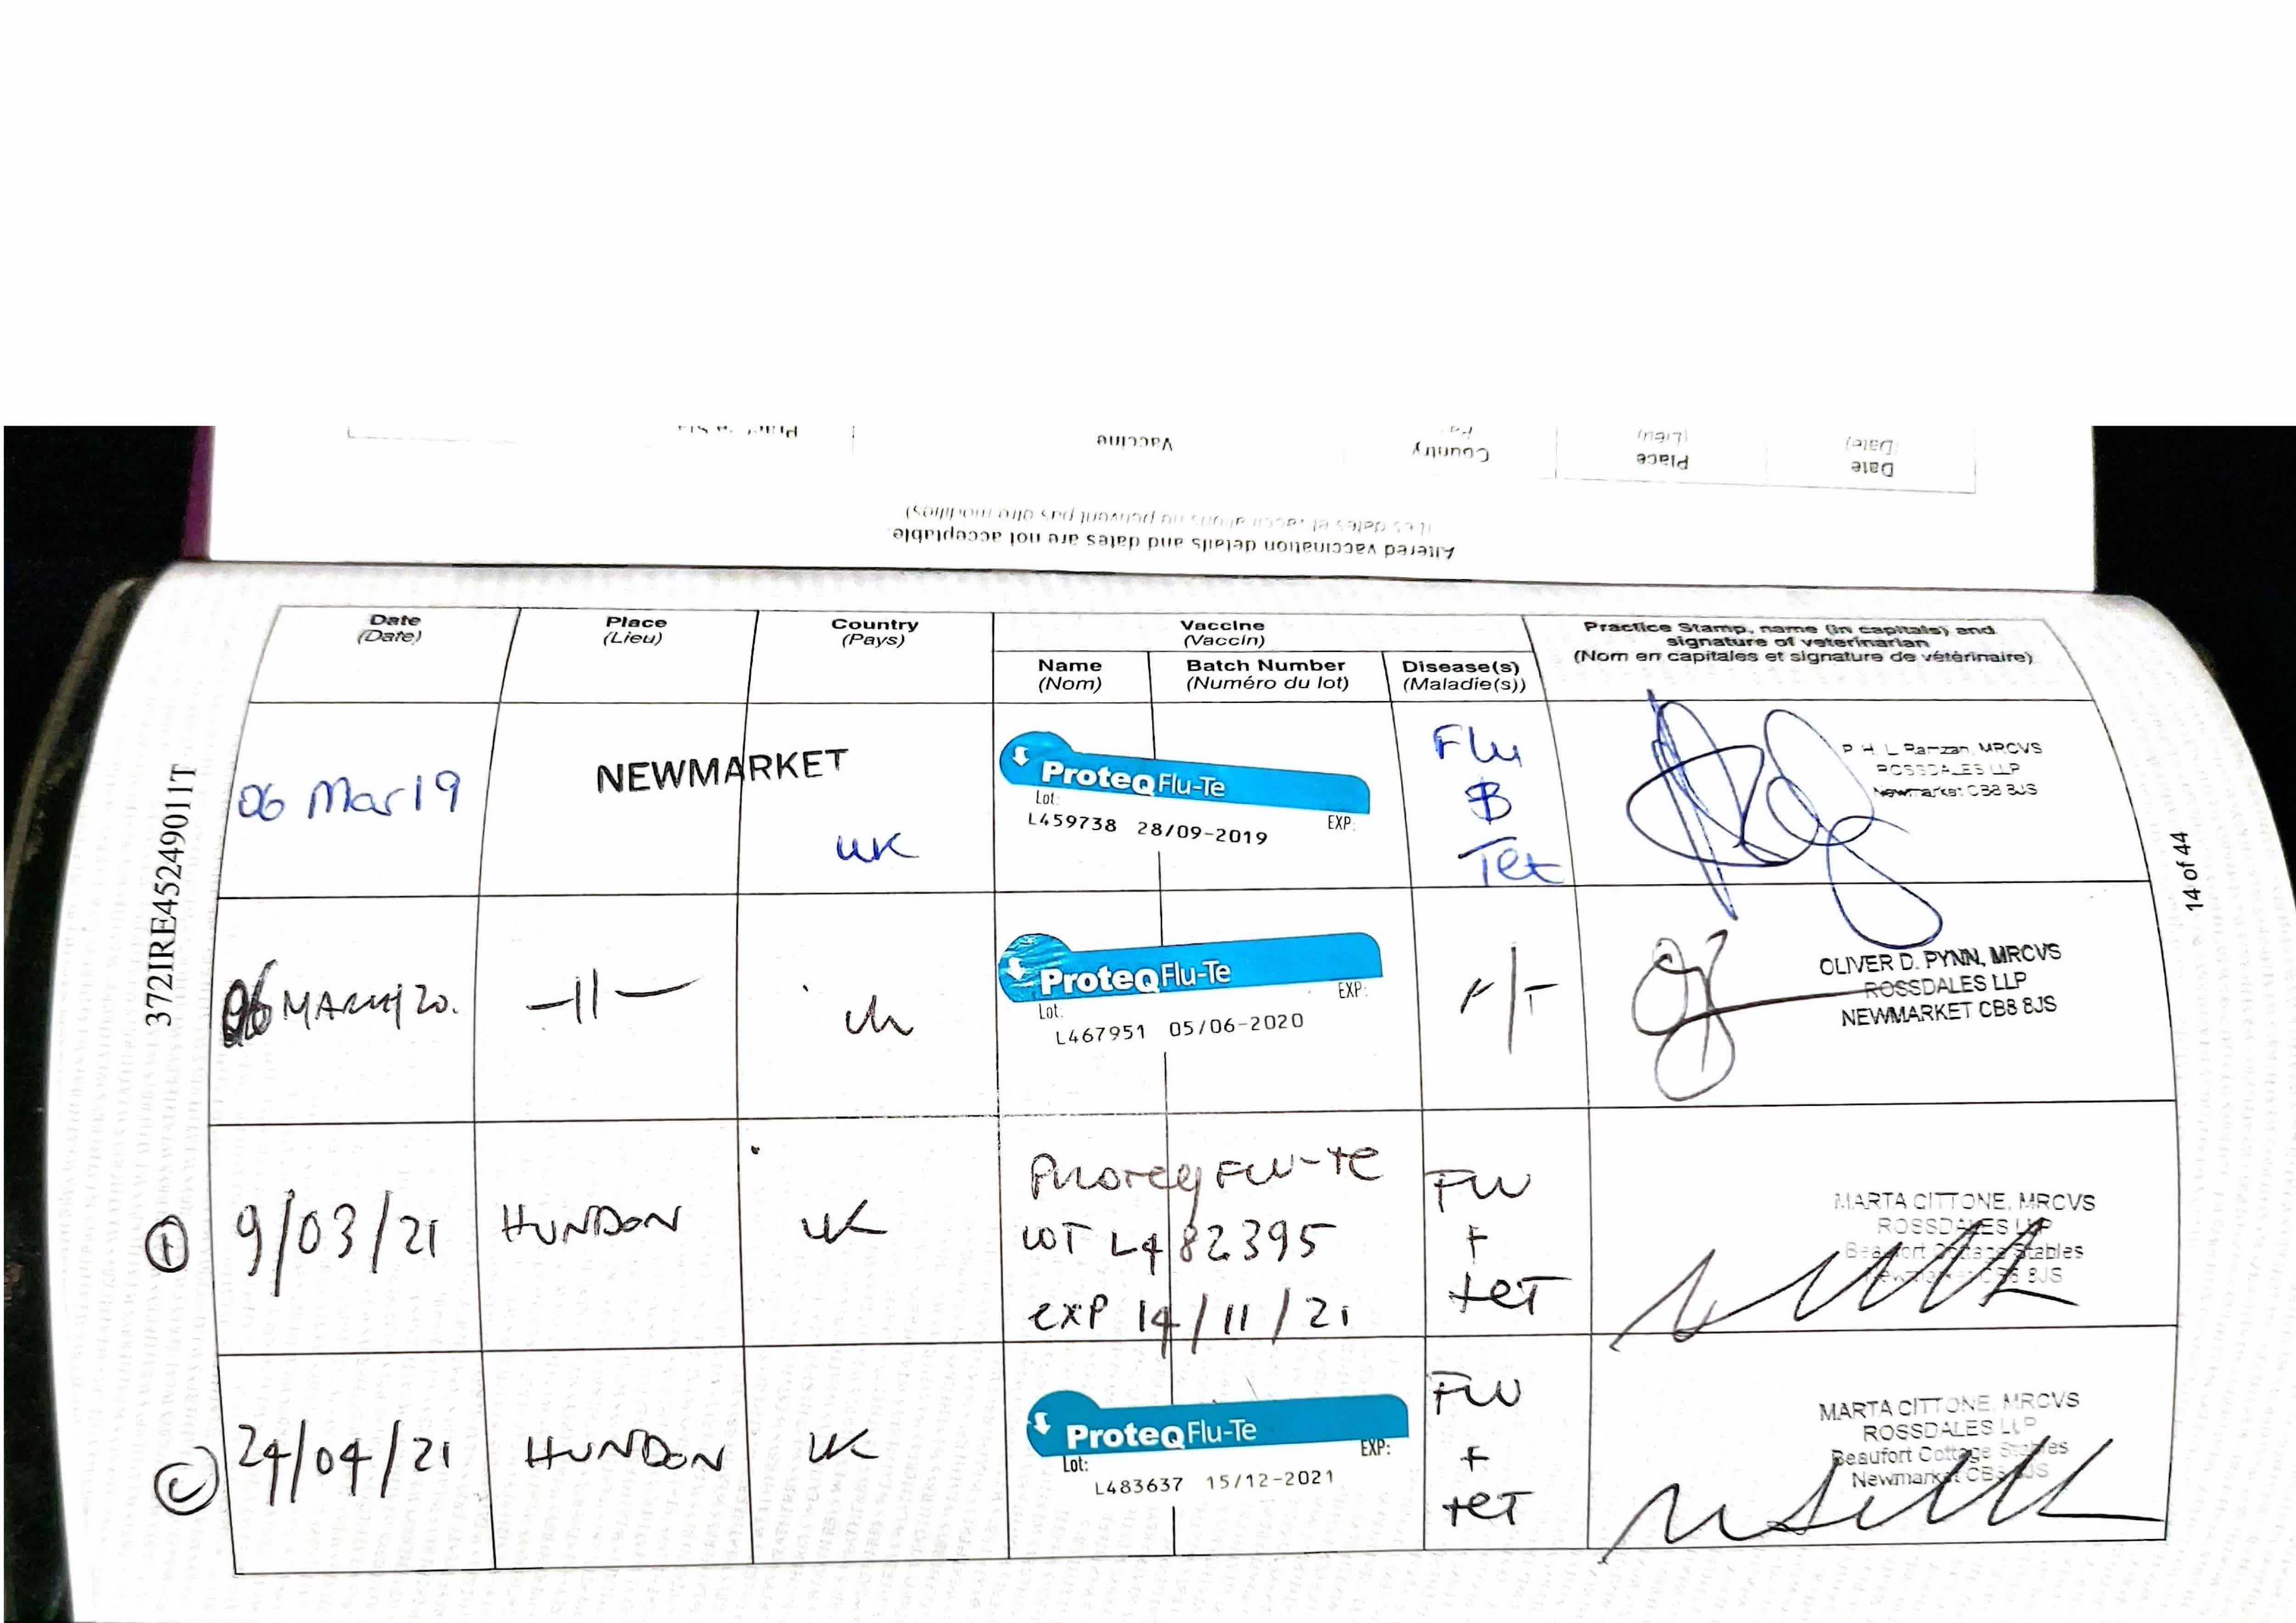 Date Place Country Vaccine Pract
(Date) (Lieu)
Altered vaccination details and dates are not acceptable.
(Les dates et vaccinations ne peuvent pas être modifiées)
Date
(Date)
Place
(Lieu)
Country
(Pays)
Vaccine
(Vaccin)
Name
(Nom)
Batch Number
(Numéro du lot)
Disease(s)
(Maladie(s))
Practice Stamp, name (in capitals) and
signature of veterinarian
(Nom en capitales et signature de vétérinaire)
372IRE45249011T
14 of 44
06 Mar 19
NEWMARKET
UK
ProteqFlu-Te
Lot: EXP:
L459738 28/09-2019
Flu
&
Tet
P. H. L Ramzan, MRCVS
ROSSDALES LLP
Newmarket CB8 8JS
06 MARCH 20.
-11-
UK
ProteqFlu-Te
Lot: EXP:
L467951 05/06-2020
F/T
OLIVER D. PYNN, MRCVS
ROSSDALES LLP
NEWMARKET CB8 8JS
9/03/21
HUNDON
UK
Proteq FLU-te
LOT L482395
exp 14/11/21
FLU
+
tet
MARTA CITTONE, MRCVS
ROSSDALES LLP
Beaufort Cottage Stables
Newmarket CB8 8JS
24/04/21
HUNDON
UK
ProteqFlu-Te
Lot: EXP:
L483637 15/12-2021
FLU
+
tet
MARTA CITTONE, MRCVS
ROSSDALES LLP
Beaufort Cottage Stables
Newmarket CB8 8JS